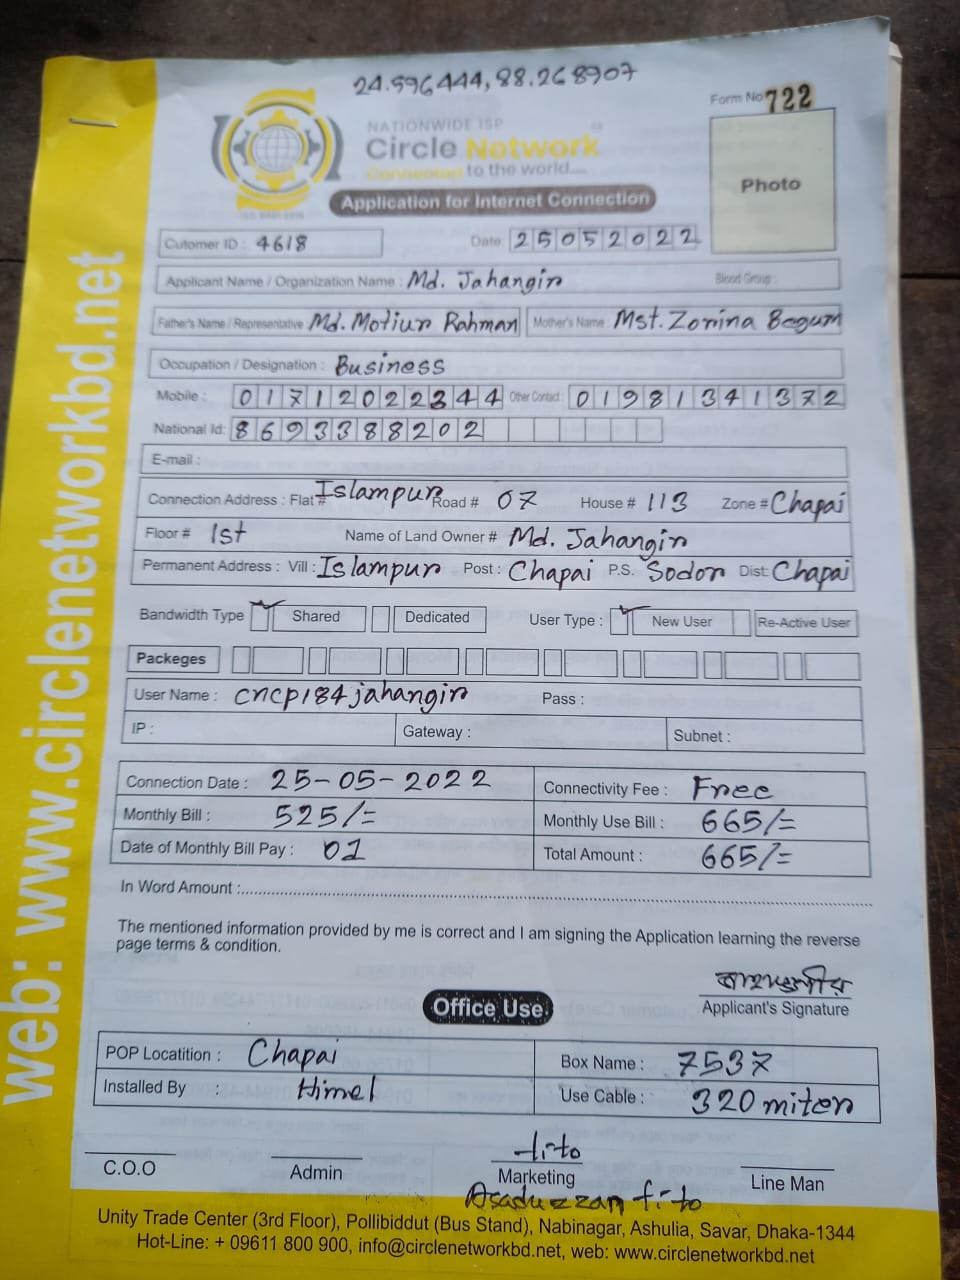 24.596444, 88.268907
Form No 722
NATIONWIDE ISP
Circle Network
Connecting to the world....
Photo
Application for Internet Connection
Cutomer ID : 4618 Date: 25052022
Applicant Name / Organization Name : Md. Jahangir Blood Group :
Father's Name / Representative Md. Motiur Rahman Mother's Name : Mst. Zorina Begum
Occupation / Designation : Business
Mobile : 01712022344 Other Contact : 01981341372
National Id: 8693388202
E-mail :
Connection Address : Flat # Islampur Road # 07 House # 113 Zone # Chapai
Floor # 1st Name of Land Owner # Md. Jahangir
Permanent Address : Vill : Islampur Post : Chapai P.S. Sodor Dist: Chapai
Bandwidth Type Shared Dedicated User Type : New User Re-Active User
Packeges
User Name : cncp184jahangir Pass :
IP : Gateway : Subnet :
Connection Date : 25-05-2022 Connectivity Fee : Free
Monthly Bill : 525/= Monthly Use Bill : 665/=
Date of Monthly Bill Pay : 01 Total Amount : 665/=
In Word Amount :
The mentioned information provided by me is correct and I am signing the Application learning the reverse
page terms & condition.
জাহাঙ্গীর
Applicant's Signature
Office Use
POP Locatition : Chapai Box Name : 7537
Installed By : Himel Use Cable : 320 miter
C.O.O Admin tito Marketing Line Man
Asaduzzam tito
Unity Trade Center (3rd Floor), Pollibiddut (Bus Stand), Nabinagar, Ashulia, Savar, Dhaka-1344
Hot-Line: + 09611 800 900, info@circlenetworkbd.net, web: www.circlenetworkbd.net
web: www.circlenetworkbd.net